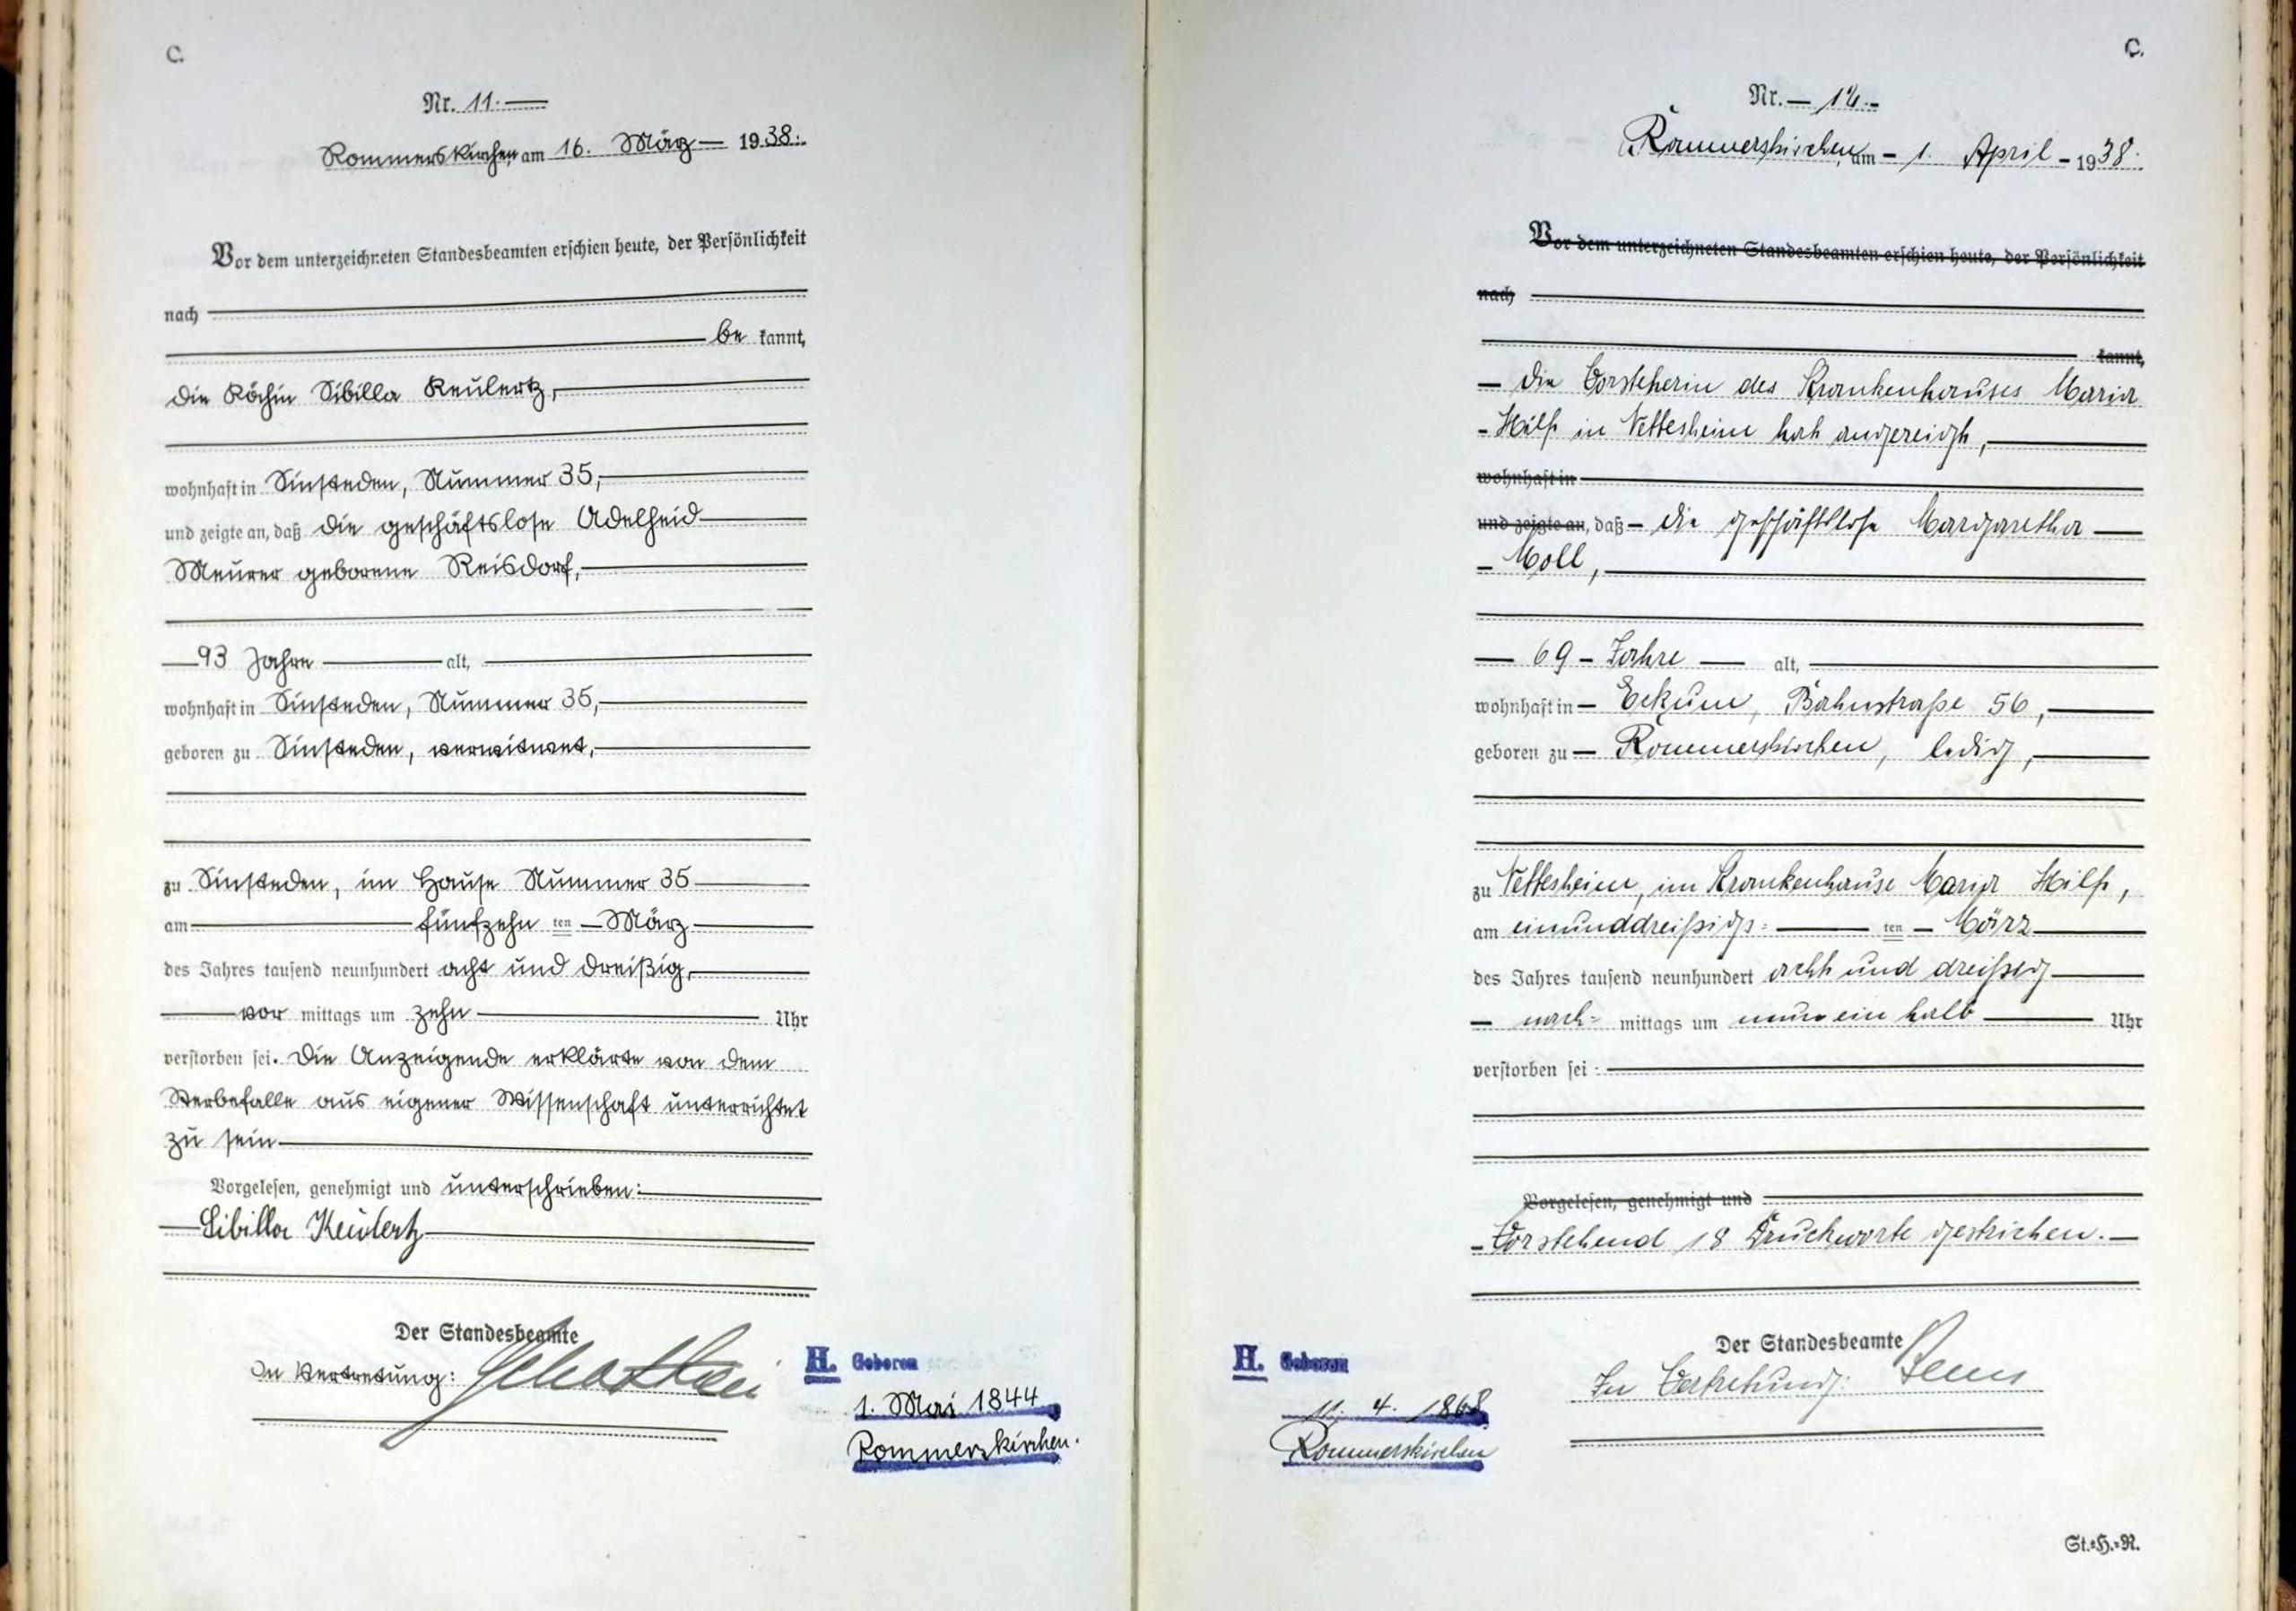 C.
Nr. 11.
Rommerskirchen, am 16. März 1938.
Vor dem unterzeichneten Standesbeamten erschien heute, der Persönlichkeit
nach
be kannt,
die Köchin Sibilla Keulertz,
wohnhaft in Sinsteden, Nummer 35,
und zeigte an, daß die geschäftslose Adelheid
Meurer geborene Reisdorf,
93 Jahre alt,
wohnhaft in Sinsteden, Nummer 35,
geboren zu Sinsteden, verwitwet,
zu Sinsteden, im Hause Nummer 35
am fünfzehn ten März
des Jahres tausend neunhundert acht und dreißig,
vor mittags um zehn Uhr
verstorben sei. Die Anzeigende erklärte von dem
Sterbefalle aus eigener Wissenschaft unterrichtet
zu sein
Vorgelesen, genehmigt und unterschrieben:
Sibilla Keulertz
Der Standesbeamte
In Vertretung:
H. Geboren
1. Mai 1844
Rommerskirchen.
C.
Nr. 14.
Rommerskirchen, am 1. April 1938.
Vor dem unterzeichneten Standesbeamten erschien heute, der Persönlichkeit
nach
kannt,
die Vorsteherin des Krankenhauses Maria
Hilf in Nettesheim hat angezeigt,
wohnhaft in
und zeigte an, daß die geschäftslose Margaretha
Moll,
69 Jahre alt,
wohnhaft in Eckum, Bahnstraße 56,
geboren zu Rommerskirchen, ledig,
zu Nettesheim, im Krankenhause Maria Hilf,
am einunddreißigs= ten März
des Jahres tausend neunhundert acht und dreißig
nach= mittags um neun ein halb Uhr
verstorben sei.
Vorgelesen, genehmigt und
Vorstehend 18 Druckworte gestrichen.
Der Standesbeamte
In Vertretung:
H. Geboren
11. 4. 1868
Rommerskirchen
St.=H.=R.